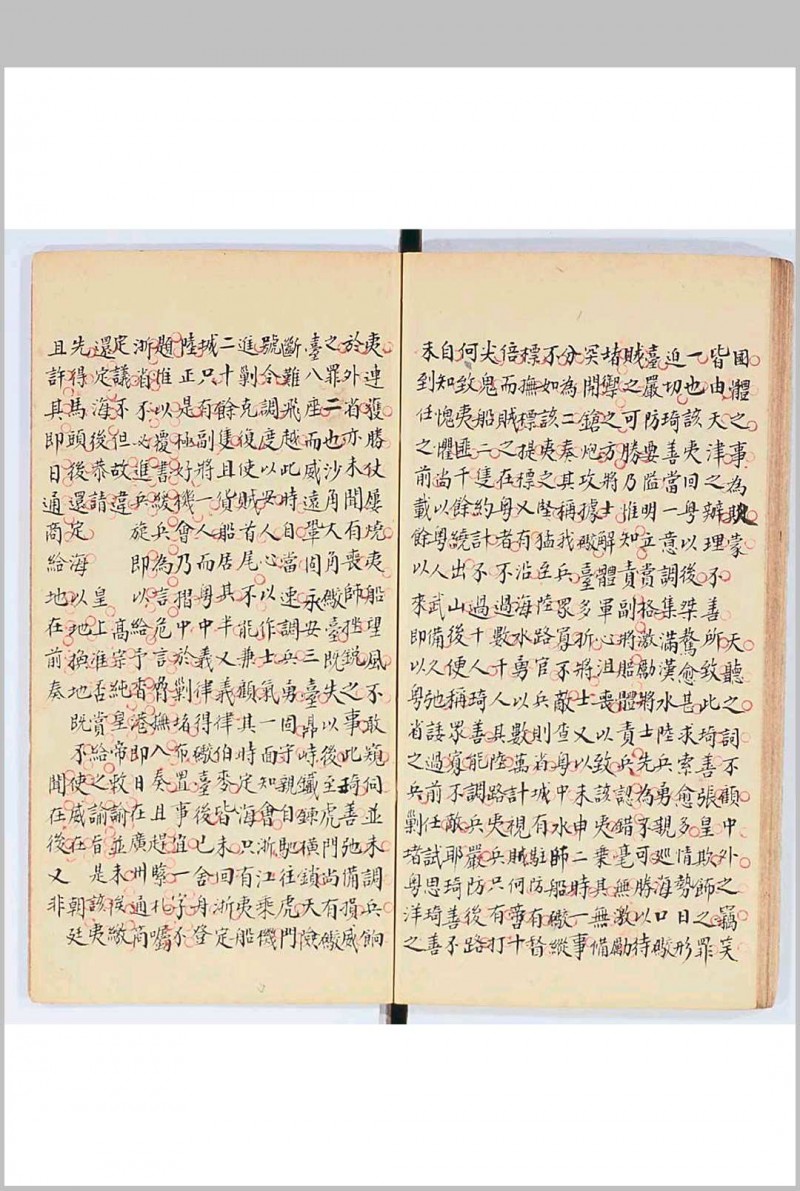 國體之事為賊蒙不天聽之詞不顧中外之竊笑
皆由天津之辦理不善所致此琦善張皇欺飾之罪
一也該夷回粤以後桀驁愈甚求索愈多情勢日形
迫切琦善當一意調集滿漢水陸兵勇親巡海口礮
臺嚴防要隘明立賞格激勵將士先為不可勝以待
賊之可勝乃惟知責副將貽體責兵認錯毫無激勵
堵禦之方將士解體軍心沮喪以致該夷乗其無備
冥開鎗炮攻據礮臺多折將士又以未申二時一事
分為二奏其稱我兵眾寡不敵查粤中水師船礮縱
不如該夷之墜猛兵陸路官兵則省城有駐防有督
標撫標提標又有沿海水勇以數萬計視賊何啻十
倍而賊之在粤者不過數千人其陸路夷兵只有打
尖鬼船二隻約計不過十人琦善能調兵嚴防後路
何致夷匪千餘繞出山後便稱眾寡不敵耶琦善不
自知愧懼尚以粤人武備久弛諉過前任試思琦善
未到任之前載餘以來即以粤省之兵剿堵粤洋之
夷連獲勝仗屢燒夷船望風不敢窺伺並未調兵餉
於外省亦未聞有喪師挫銳之事此琦善弛備損威
之罪二也沙角大角礮臺既失以後至虎門尚有礮
臺八座而威遠鞏固永安三臺鼎峙鐵鍊横鎖天險
斷難飛越此時自當速調兵勇固守親自馳往虎門
號令調度以安人心以作士氣一面知會浙江乘機
進剿克復使賊首尾不能兼顧其時定海只有夷船
二十餘隻且貨船居其半又義律伯季皆未回浙定
城只有副將一人而粤中義律得礮臺後已舍舟登
陸正是極好機會乃搢中於剿堵布置事值一字不
題准以覆書緩兵為言危言脅撫八奏且赶緊札囑
浙省不必進兵旋即以給予省港即日在廣州通商
定議不但故違高宗純皇帝敕諭並未後繳
還定海後恭請皇上准否賞給之諭旨是該夷
先得馬頭後還定海以地換地既不使威在朝廷
且許其即日通商給地在前奏聞在後又非